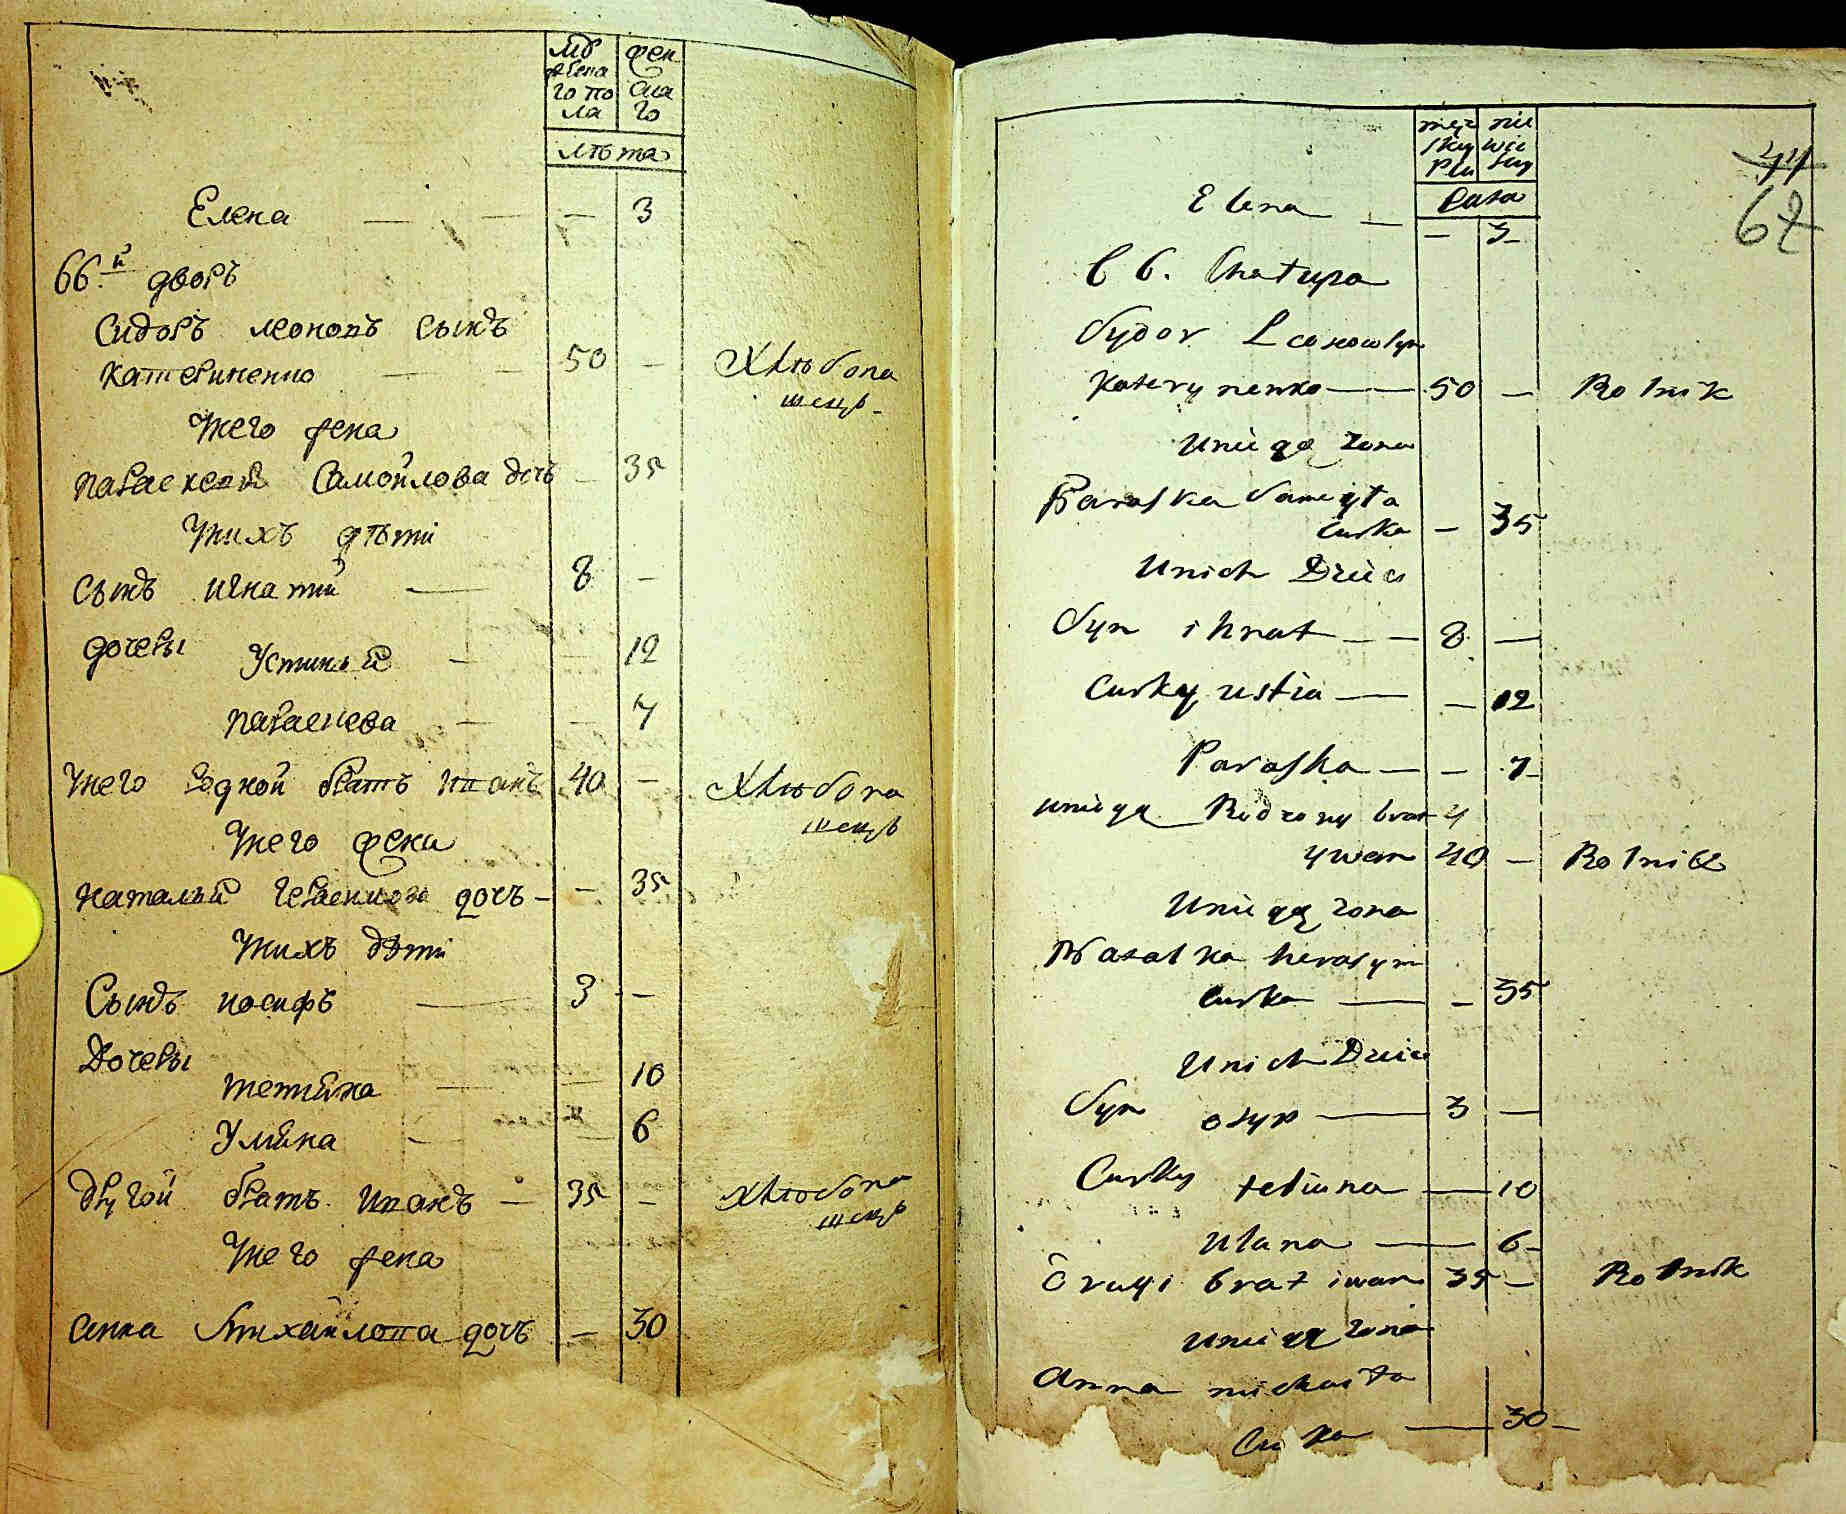 мужеска го по ла
жен ска го
лѣта
Елена — — — 3
66.й дворъ
Сидоръ леоновъ сынъ
Катериненко — — 50 — Хлѣбопа
шецъ
Унего жена
параскевія Самойлова дочь — 35
Унихъ дѣти
сынъ игнатій — 8 —
дочери Устинья — 12
параскева — — 7
Унего родной братъ иванъ 40 — Хлѣбопа
шецъ
Унего жена
наталья герасимова дочь — — 35
Унихъ дѣти
Сынъ иосифъ — 3 —
Дочери
тетяна — — 10
Уляна — — 6
другой братъ иванъ — 35 — хлѣбопа
шецъ
Унего жена
анна Михайлова дочь — 30
męz
skey
płu
nie
wie
sey
Lata
44
67
Elena — — 3
66. Chatupa
Sydor Leonow syn
Katerynenko — 50 — Rolnik
Uniego zona
Paraska Samoyła
curka — 35
Unich Dzieci
Syn ihnat — — 8 —
Curky ustia — — 12
Paraska — — 7
uniego Rodzony brat 4
ywan 40 — Rolnik
Uniego zona
Natalka herasym
curka — — 35
Unich Dzieci
Syn osyp — 3 —
Curky tetiana — 10
Ulana — 6
Drugi brat iwan 35 — Rolnik
Uniego zona
Anna michaiła
Curka — 30 —